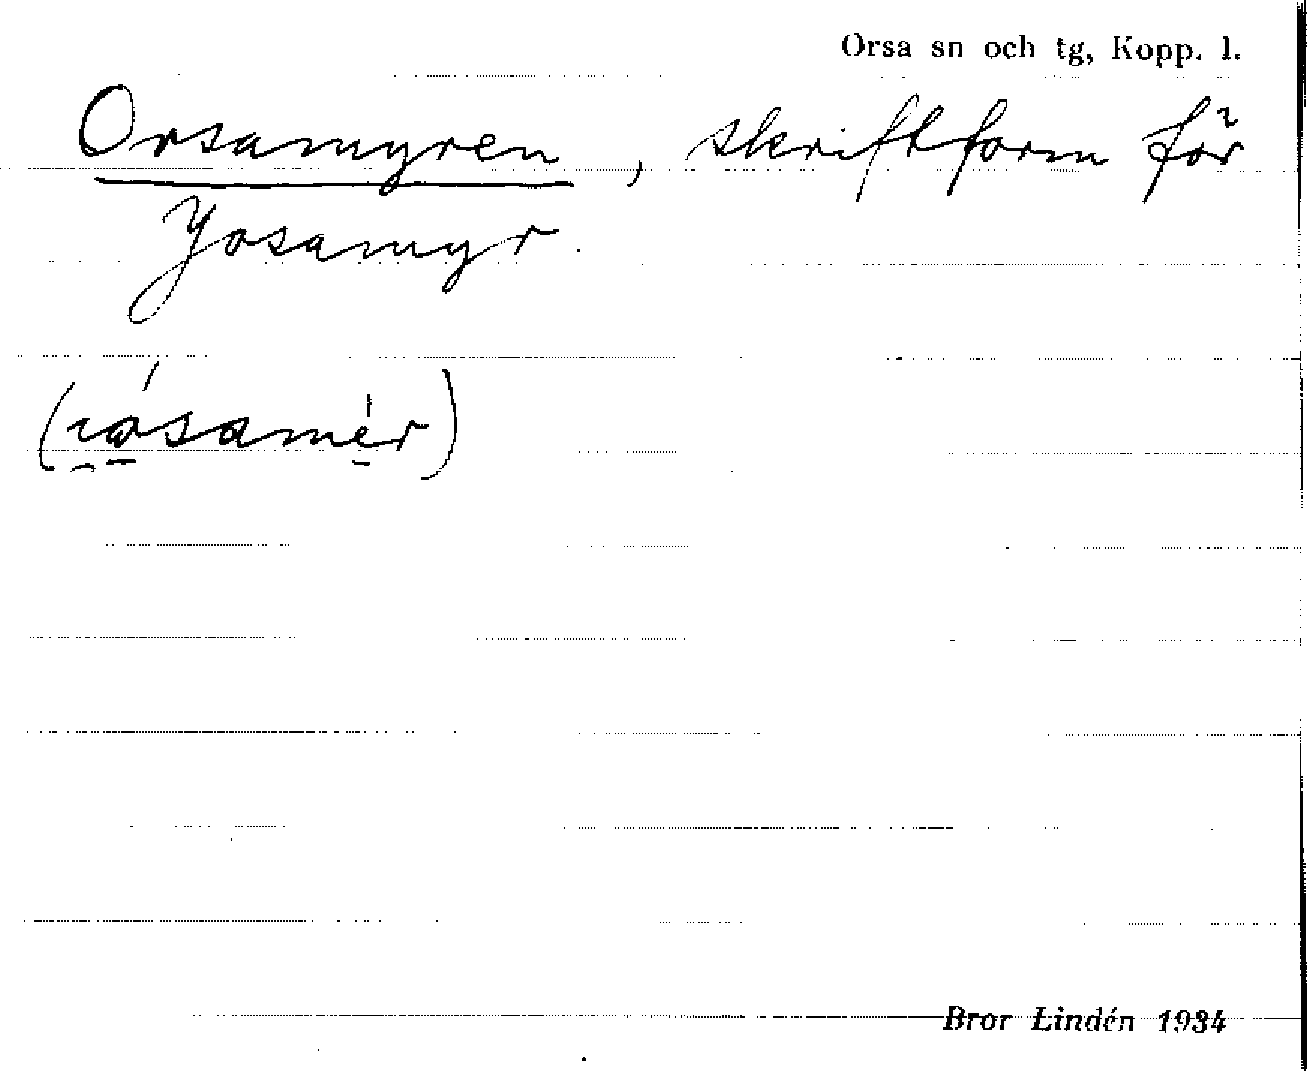 Orsa sn och tg, Kopp. l.
Orsamyren, skriftform för
Yosamyr.
Bror Lindén 1934